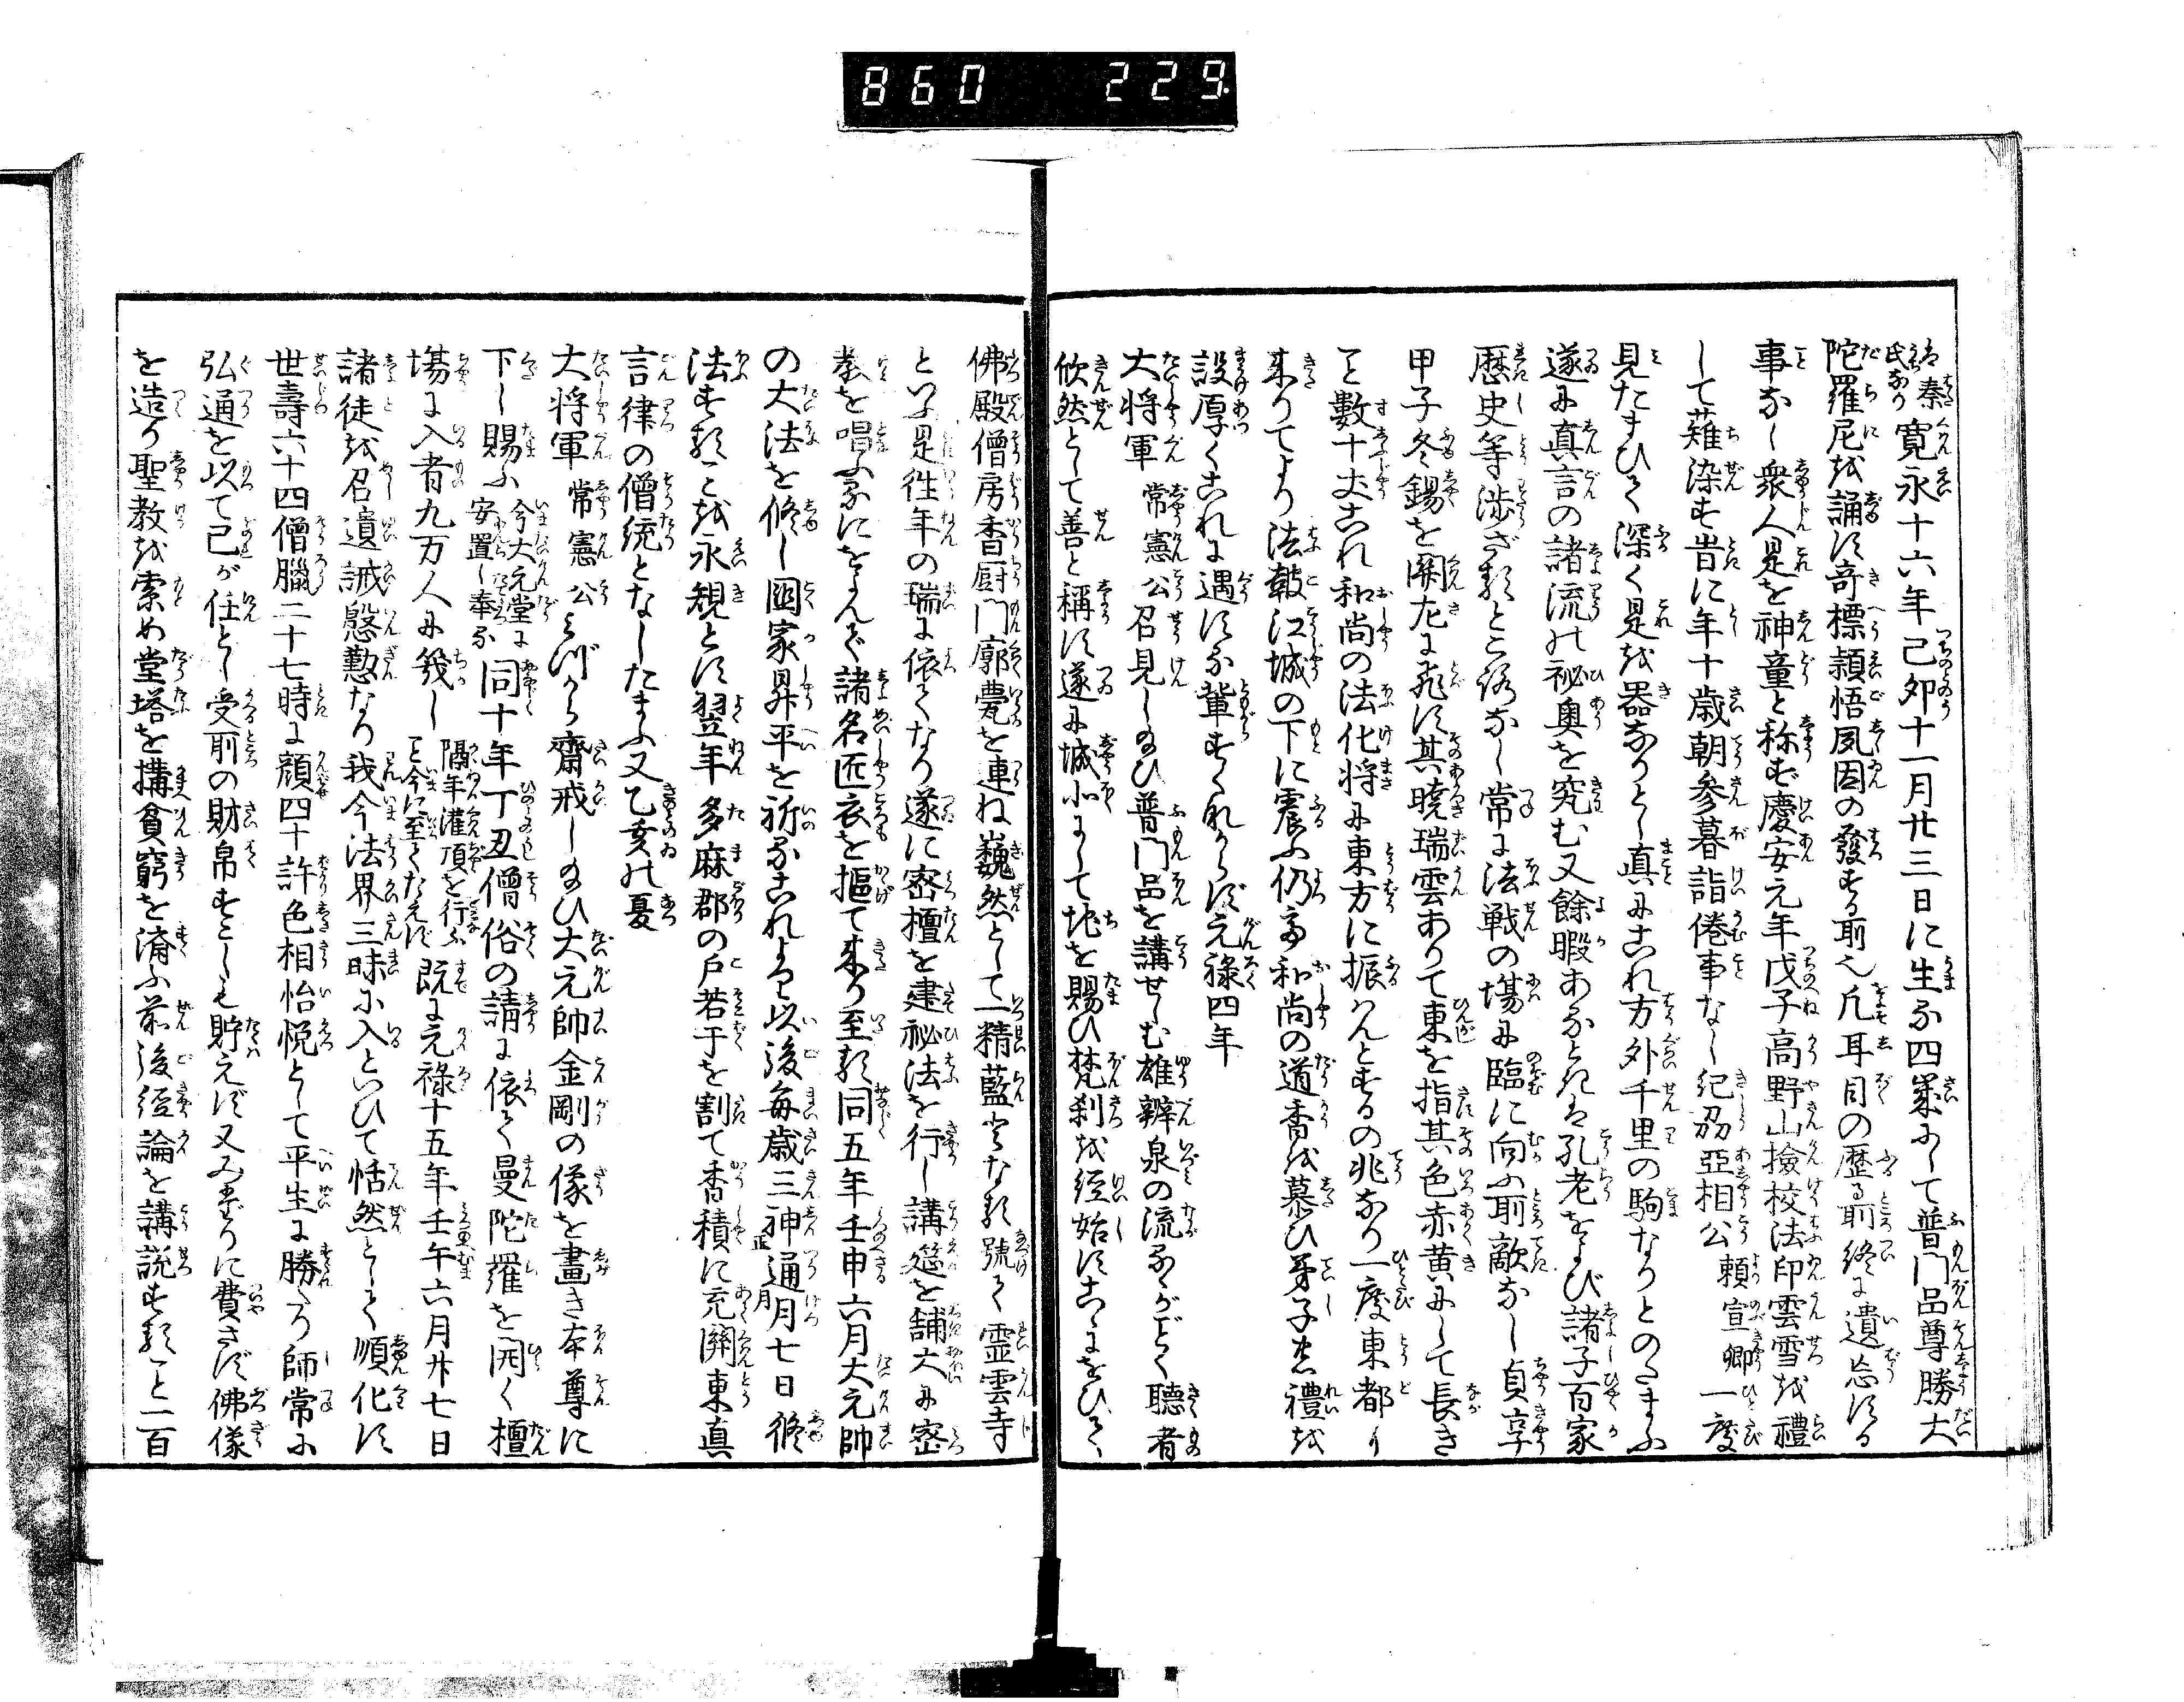 860 229.
は秦氏なり寛永十六年己卯十一月廿三日に生る四歳にして普門品尊勝大
陀羅尼を誦す奇標頴悟夙因の發する所也凡耳目の歴る所終に遺忘する
事なし衆人是を神童と称ず慶安元年戊子高野山撿校法印雲雪を禮
して薙染す昔に年十歳朝参暮詣倦事なし紀刕亞相公頼宣卿一度
見たまひて深く是を器なりとし真にこれ方外千里の駒なりとのたまふ
遂に真言の諸流の祕奥を究む又餘暇あるときは孔老をよび諸子百家
歴史等渉ざるところなし常に法戦の場に臨に向ふ所敵なし貞享
甲子冬錫を關左に飛す其曉瑞雲ありて東を指其色赤黄にして長き
こと數十丈これ和尚の法化将に東方に振はんとするの兆なり一度東都に
来りてより法鼓江城の下に震ふ仍而和尚の道香を慕ひ弟子の禮を
設厚くこれに遇する輩すくなからず元禄四年
大将軍 常憲公召見し給ひ普門品を講せしむ雄辨泉の流るゝがごとく聴者
欣然として善と稱す遂に城北にして地を賜ひ梵刹を経始すこゝにをひて
佛殿僧房香厨門廓甍を連ね巍然として一精藍となる號て霊雲寺
といふ是徃年の瑞に依てなり遂に密檀を建祕法を行し講筵を舗大に密
教を唱ふるにをよんで諸名匠衣を摳て来り至る同五年壬申六月大元帥
の大法を修し國家昇平を祈るこれより以後毎歳三神通月正月七日修
法することを永規とす翌年多麻郡の戸若干を割て香積に充關東真
言律の僧統となしたまふ又乙亥の夏
大将軍 常憲公みづから齋戒し給ひ大元帥金剛の像を畫き本尊に
下し賜ふ今大元堂に安置し奉る同十年丁丑僧俗の請に依て曼陀羅を開く檀
場に入者九万人に幾し隔年灌頂を行ふこと今に至てたえず既に元禄十五年壬午六月廿七日
諸徒を召遺誡慇懃なり我今法界三昧に入といひて恬然として順化す
世壽六十四僧臘二十七時に顔四十許色相怡悦として平生に勝たり師常に
弘通を以て己が任とし受所の財帛すこしも貯えず又みだりに費さず佛像
を造り聖教を索め堂塔を搆貧窮を濟ふ前後経論を講説すること二百